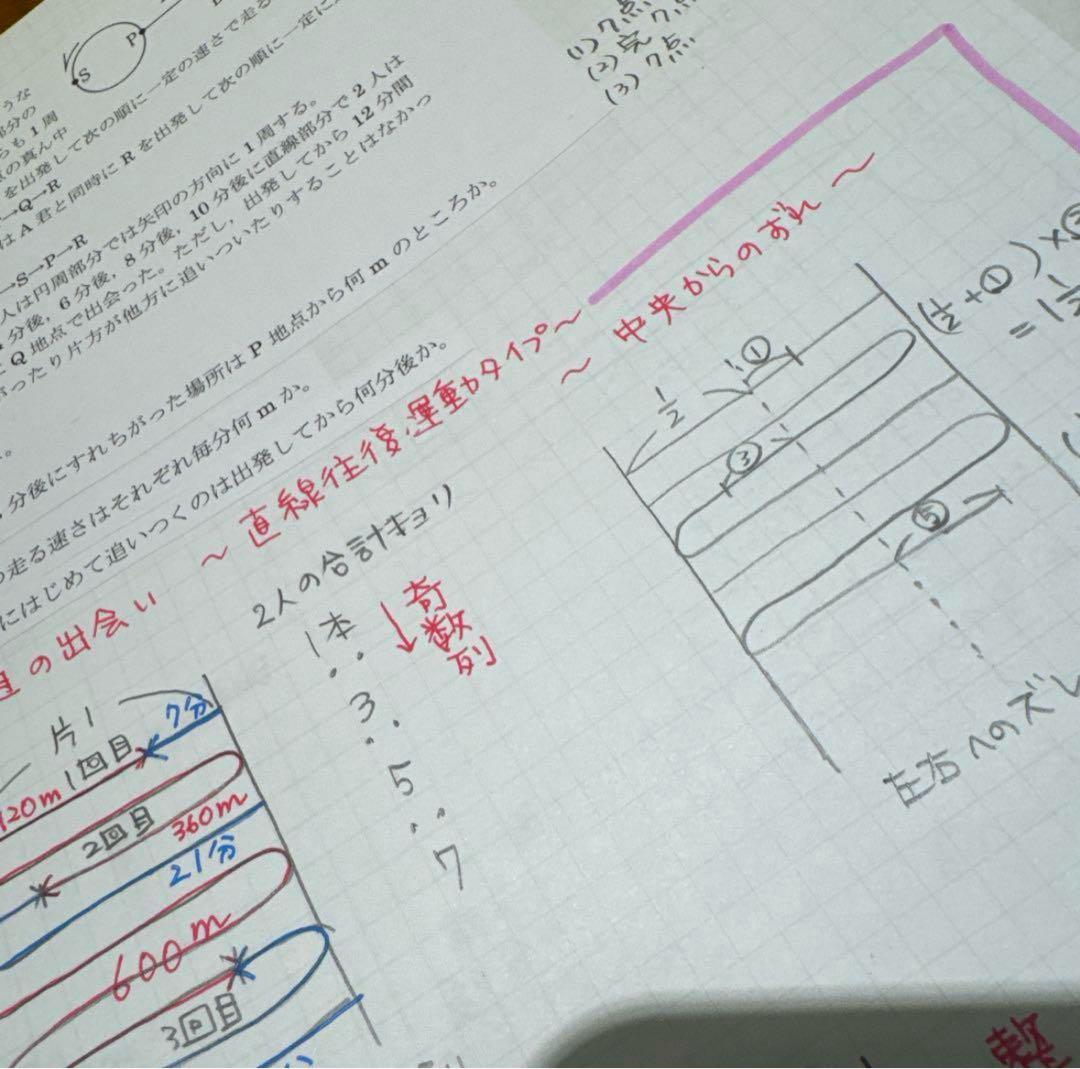 (1) 7点
(2) 完7点
(3) 7点
P
S
うな
部分の
らも1周
点の真ん中
を出発して次の順に一定の速さで走る
→Q→R
はA君と同時にRを出発して次の順に一定に
→S→P→R
人は円周部分では矢印の方向に1周する。
分後，6分後，8分後，10分後に直線部分で2人は
Q地点で出会った。ただし，出発してから12分間
がったり片方が他方に追いついたりすることはなかっ
分後にすれちがった場所はP地点から何mのところか。
走る速さはそれぞれ毎分何mか。
にはじめて追いつくのは出発してから何分後か。
〜直線往復・運動タイプ〜
の出会い
2人の合計キョリ
1本
3
5
7
奇数列
片1
7分
1回目
120m
2回目
360m
21分
600m
3回目
〜中央からのずれ〜
1/2
①
③
⑤
(1/2+①)×
左右へのズレ